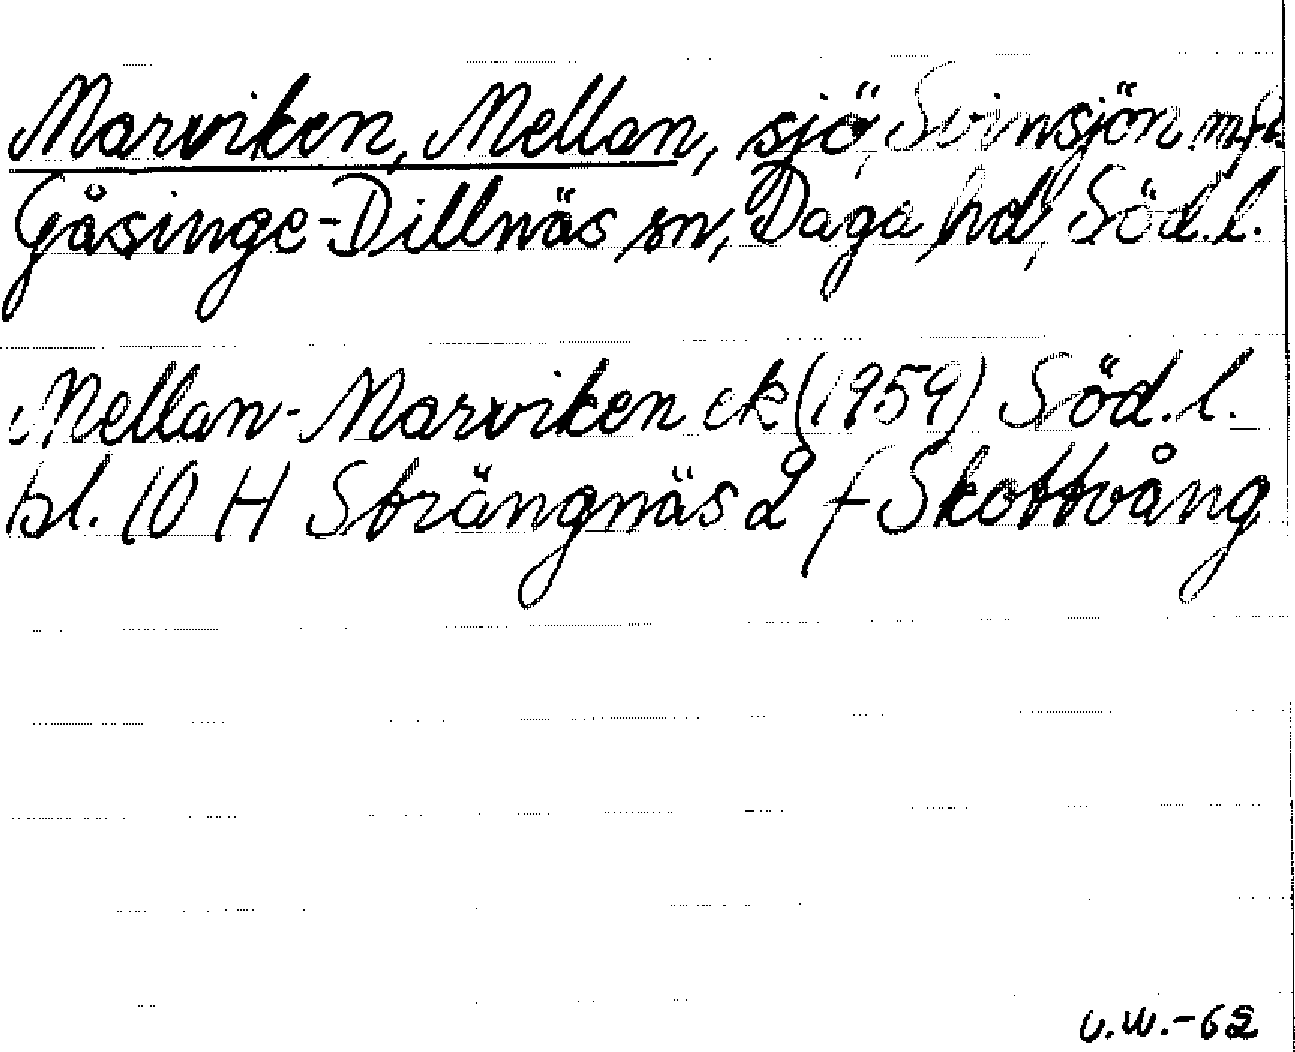 Marviken, Mellan, sjö, Svinsjön m.fl.
Gåsinge-Dillnäs sn, Daga hd, Söd.l.
Mellan-Marviken ek (1959) Söd.l.
bl. 10 H Strängnäs 2 f Skottvång
U.W.-62